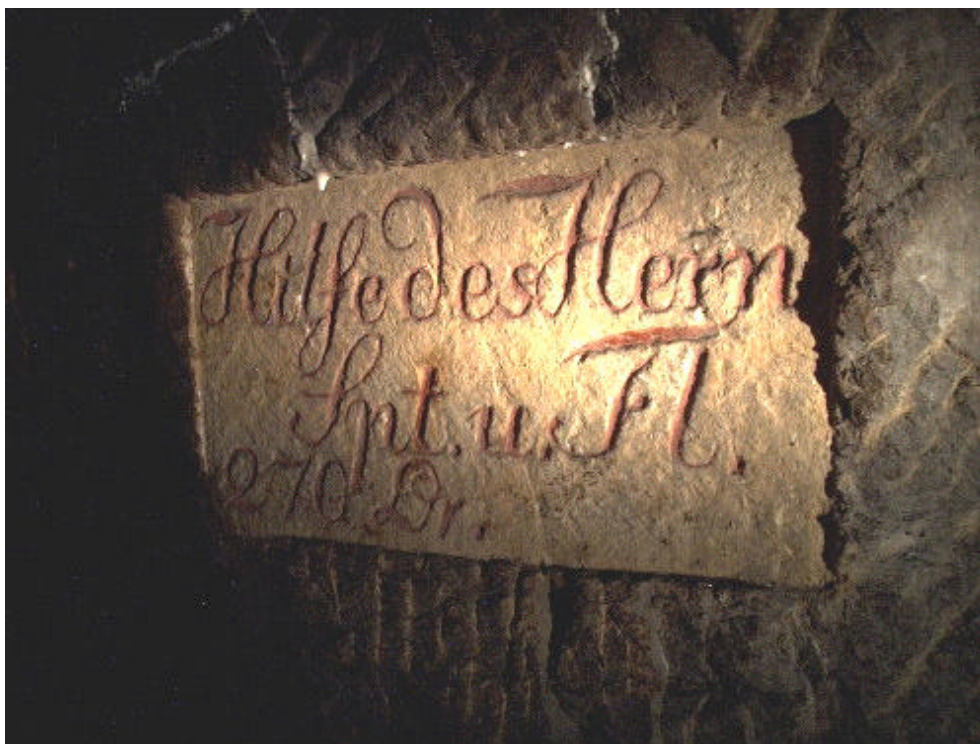 Hilfe des Hern
Spt. u. Fl.
270 Dr.